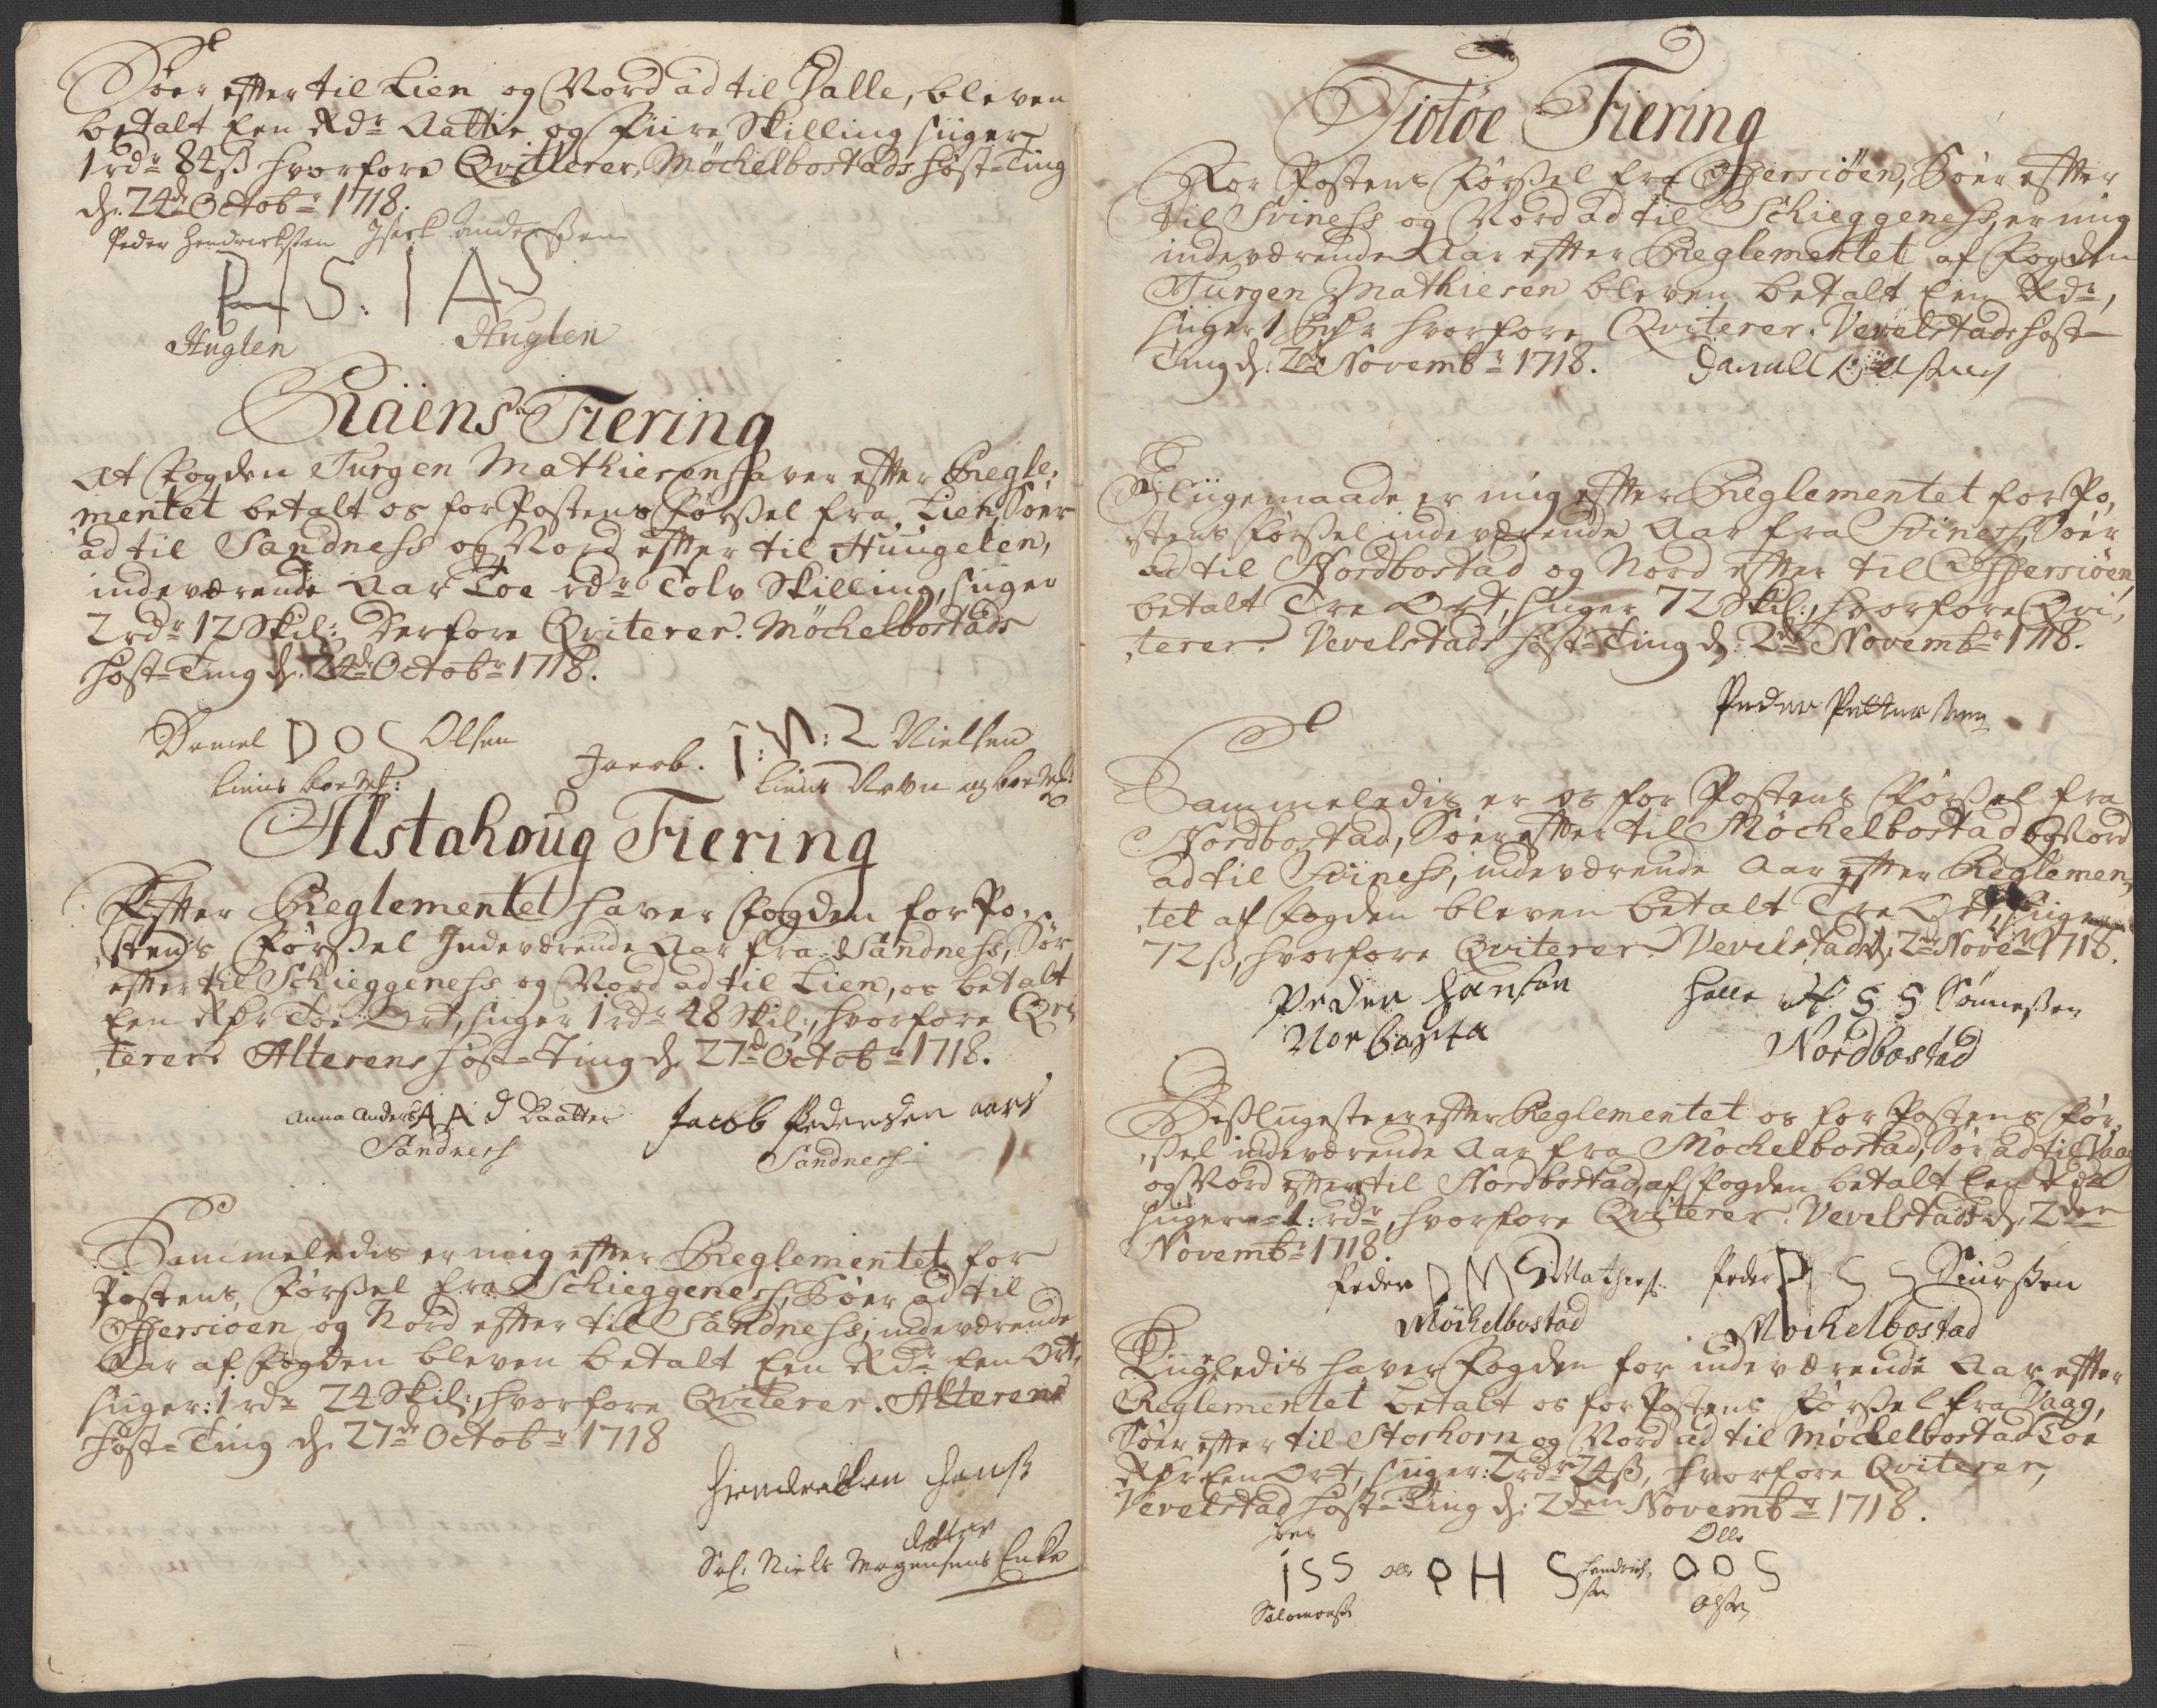 Söer effter til Lien og Nord ad til Valle, bleven
betalt Een Rdr Aattie og Fiire Skilling siiger
1 rdr 84 ß hvorfore Qvitterer, Möchelbostads Höst-Ting
d. 24de Octobr 1718.
Peder Hendrichsen Isach Anderssen
P H S: I A S
Huglen Huglen
Röäens Fiering
At Fogden Jürgen Mathiesen haver effter Regle-
mentet betalt os for Postens Förssel fra Lien, Söer
ad til Sandness og Nord effter til Huugelen,
indeværende Aar Toe rdr Tolv Skilling, siiger
2 rdr 12 Skil: Derfore Qviterer. Möchelbostads
Höst-Ting d. 24de Octobr 1718.
Daniel D O S Olsen Jacob. I: N: S Nielsen
Liens
Alstahoug Fiering
Effter Reglementet haver Fogden for Po-
stens Förssel Indeværende Aar fra Sandness, Sör
effter til Schieggeness og Nord ad til Lien, os betalt
Een Rdr Toe Ort, siiger 1 rdr 48 Skil:, hvorfore Qvi-
terer. Alterens Höst-Ting d. 27de Octobr 1718.
Anna Anders A A d Daatter Jacob Pedersen aars
Sandness Sandness
Sammeledis er mig effter Reglementet for
Postens Förssel fra Schieggeness, Söer ad til
Offersiöen og Nord effter til Sandness, indeværende
Aar af Fogden bleven betalt Een Rdr Een Ort,
siiger: 1 rdr 24 Skil:, hvorfore Qviterer. Alterens
Höst-Ting d. 27de Octobr 1718
Hans
datter
Sal. Niels Mogensens Enke
Tiötöe Fiering
For Postens Förssel fra Offersiöen, Söer effter
til Sviness og Nord ad til Schieggeness, er mig
indeværende Aar effter Reglementet af Fogden
Jürgen Mathiesen bleven betalt Een Rdr,
siiger 1 Rdr hvorfore Qviterer. Vevelstads Höst-
Ting d: 2de Novembr 1718. Daniell Ollsen
I liigemaade er mig effter Reglementet for Po-
stens Förssel indeværende Aar fra Sviness, Söer
ad til Nordbostad og Nord effter til Offersiöen
betalt Tre Ort, siiger 72 Skil:, hvorfore Qvi-
terer. Vevelstads Höst-Ting d: 2de Novembr 1718.
Peder Pettersen
Sammeledis er os for Postens Förssel fra
Nordbostad, Söer effter til Möchelbostad og Nord
ad til Sviness, indeværende Aar effter Reglemen-
tet af Fogden bleven betalt Tre Ort, siiger
72 ß, hvorfore Qviterer. Vevelstad d. 2de Novr 1718.
Peder Hansen Halle H S S Sönnessen
Norbosta Nordbostad
Desligeste er effter Reglementet os for Postens För-
ssel indeværende Aar fra Möchelbostad, Sör ad til Vaag
og Nord effter til Nordbostad, af Fogden betalt Een Rdr
siiger 1: rdr, hvorfore Qviterer. Vevelstad d. 2den
Novembr 1718.
Peder P M S Mathies. Peder P S S Siurssen
Möchelbostad Möchelbostad
Liigeledis haver Fogden for indeværende Aar effter
Reglementet betalt os for Postens Förssel fra Vaag,
Söer effter til Storhorn og Nord ad til Möchelbostad Toe
Rdr Een Ort, siiger: 2 rdr 24 ß, hvorfore Qviterer,
Vevelstad Höst-Ting d: 2den Novembr 1718.
Iver Olle
I S S Olle O H S Hendrich- O O S
Salomonss. sen Olsen